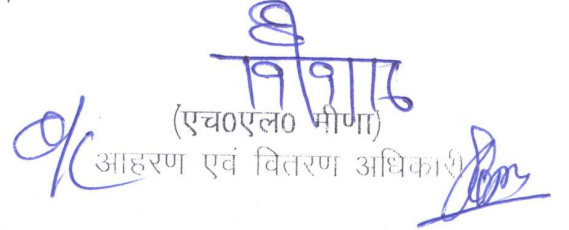 (एच0एल0 मीणा)
आहरण एवं वितरण अधिकारी